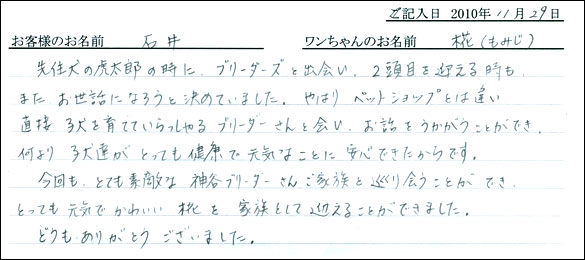 ご記入日 2010年11月29日
お客様のお名前 石井 ワンちゃんのお名前 椛(もみじ)
先住犬の虎太郎の時に、ブリーダーズと出会い、2頭目を迎える時も、
また、お世話になろうと決めていました。やはりペットショップとは違い
直接子犬を育てていらっしゃるブリーダーさんと会い、お話をうかがうことができ、
何より子犬達がとっても健康で元気なことに安心できたからです。
今回も、とても素敵な神谷ブリーダーさんご家族と巡り会うことができ、
とっても元気でかわいい椛を、家族として迎えることができました。
どうもありがとうございました。